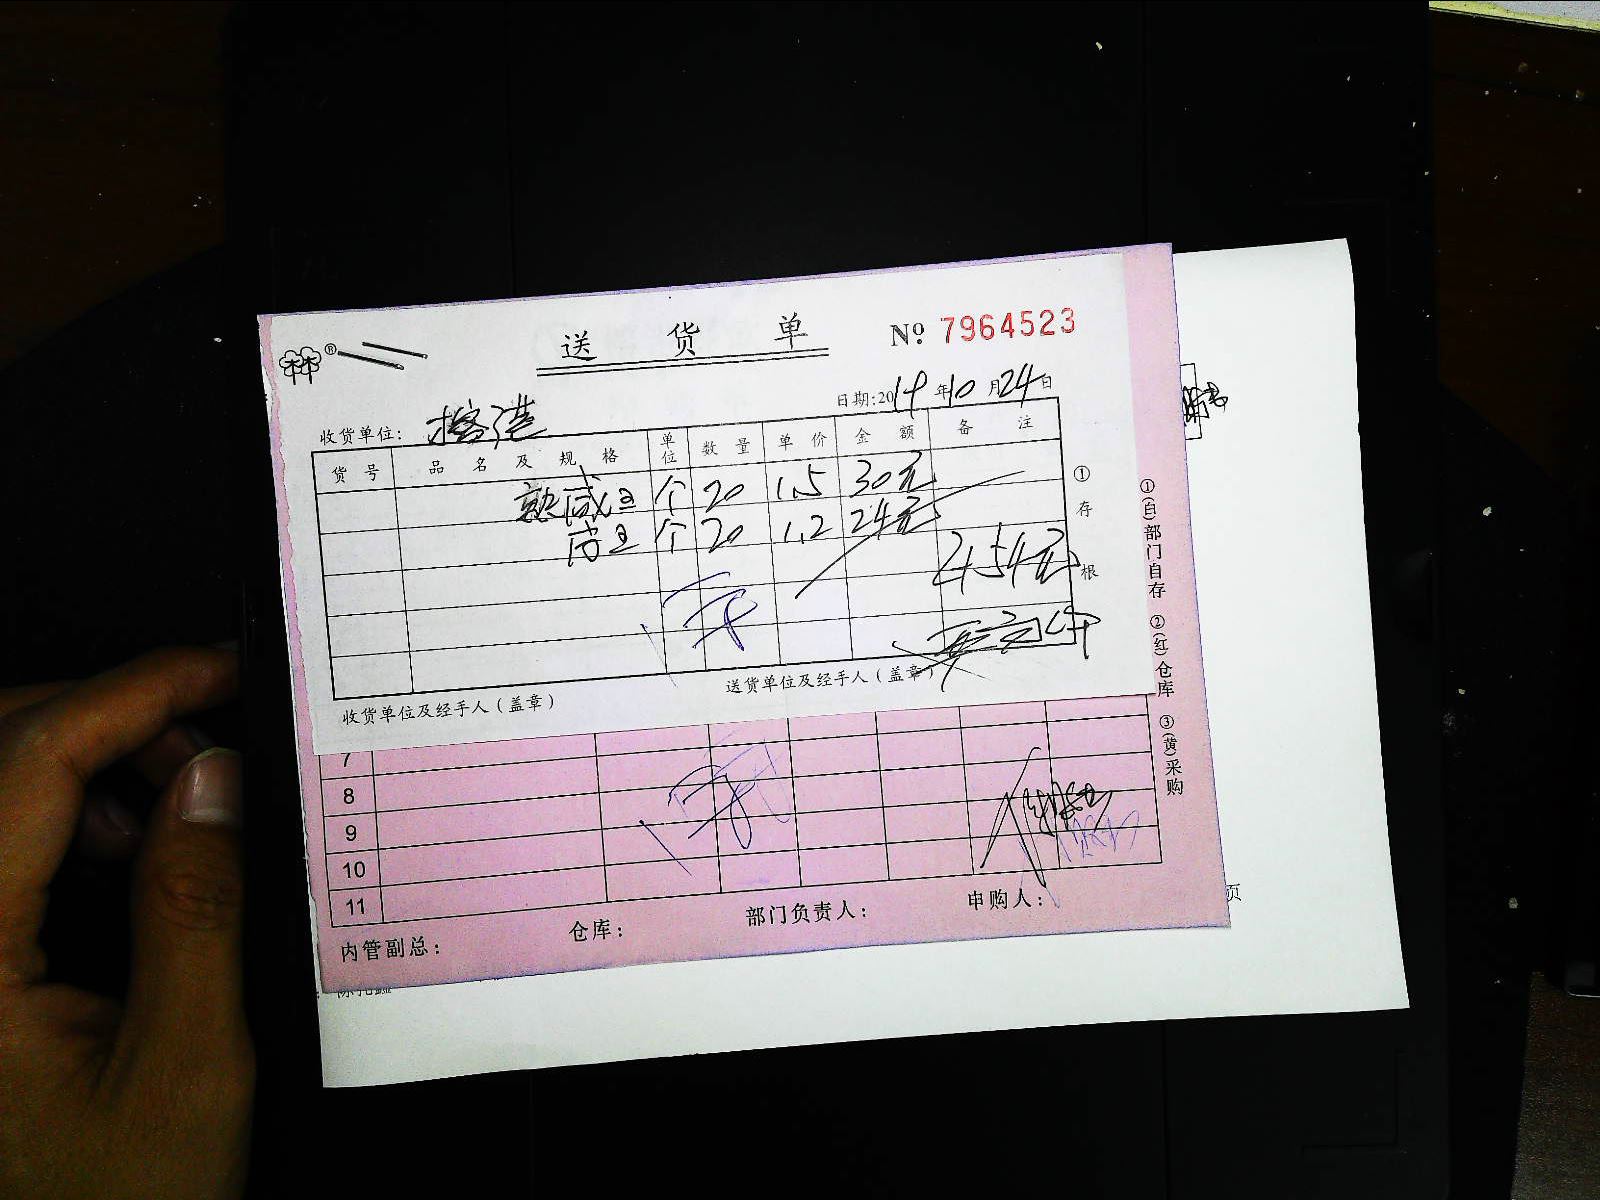 ®
送 货 单
Nº 7964523
日期:2019年10月24日
收货单位:
货号 品名及规格 单位 数量 单价 金额 备注
熟咸旦 个 20 1.5 30元
皮旦 个 20 1.2 24元
54元
① 存 根
收货单位及经手人(盖章)
送货单位及经手人(盖章)
①(白)部门自存 ②(红)仓库 ③(黄)采购
7
8
9
10
11
内管副总:
仓库:
部门负责人:
申购人:
页